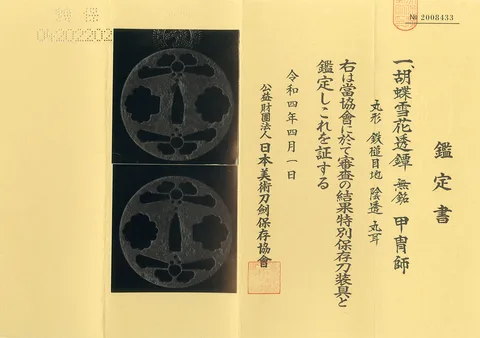 № 2008433
鑑定書
一、胡蝶雪花透鐔 無銘 甲冑師
丸形 鉄槌目地 陰透 丸耳
右は當協會に於て審査の結果特別保存刀装具と
鑑定しこれを証する
令和四年四月一日
公益財團法人 日本美術刀剣保存協會